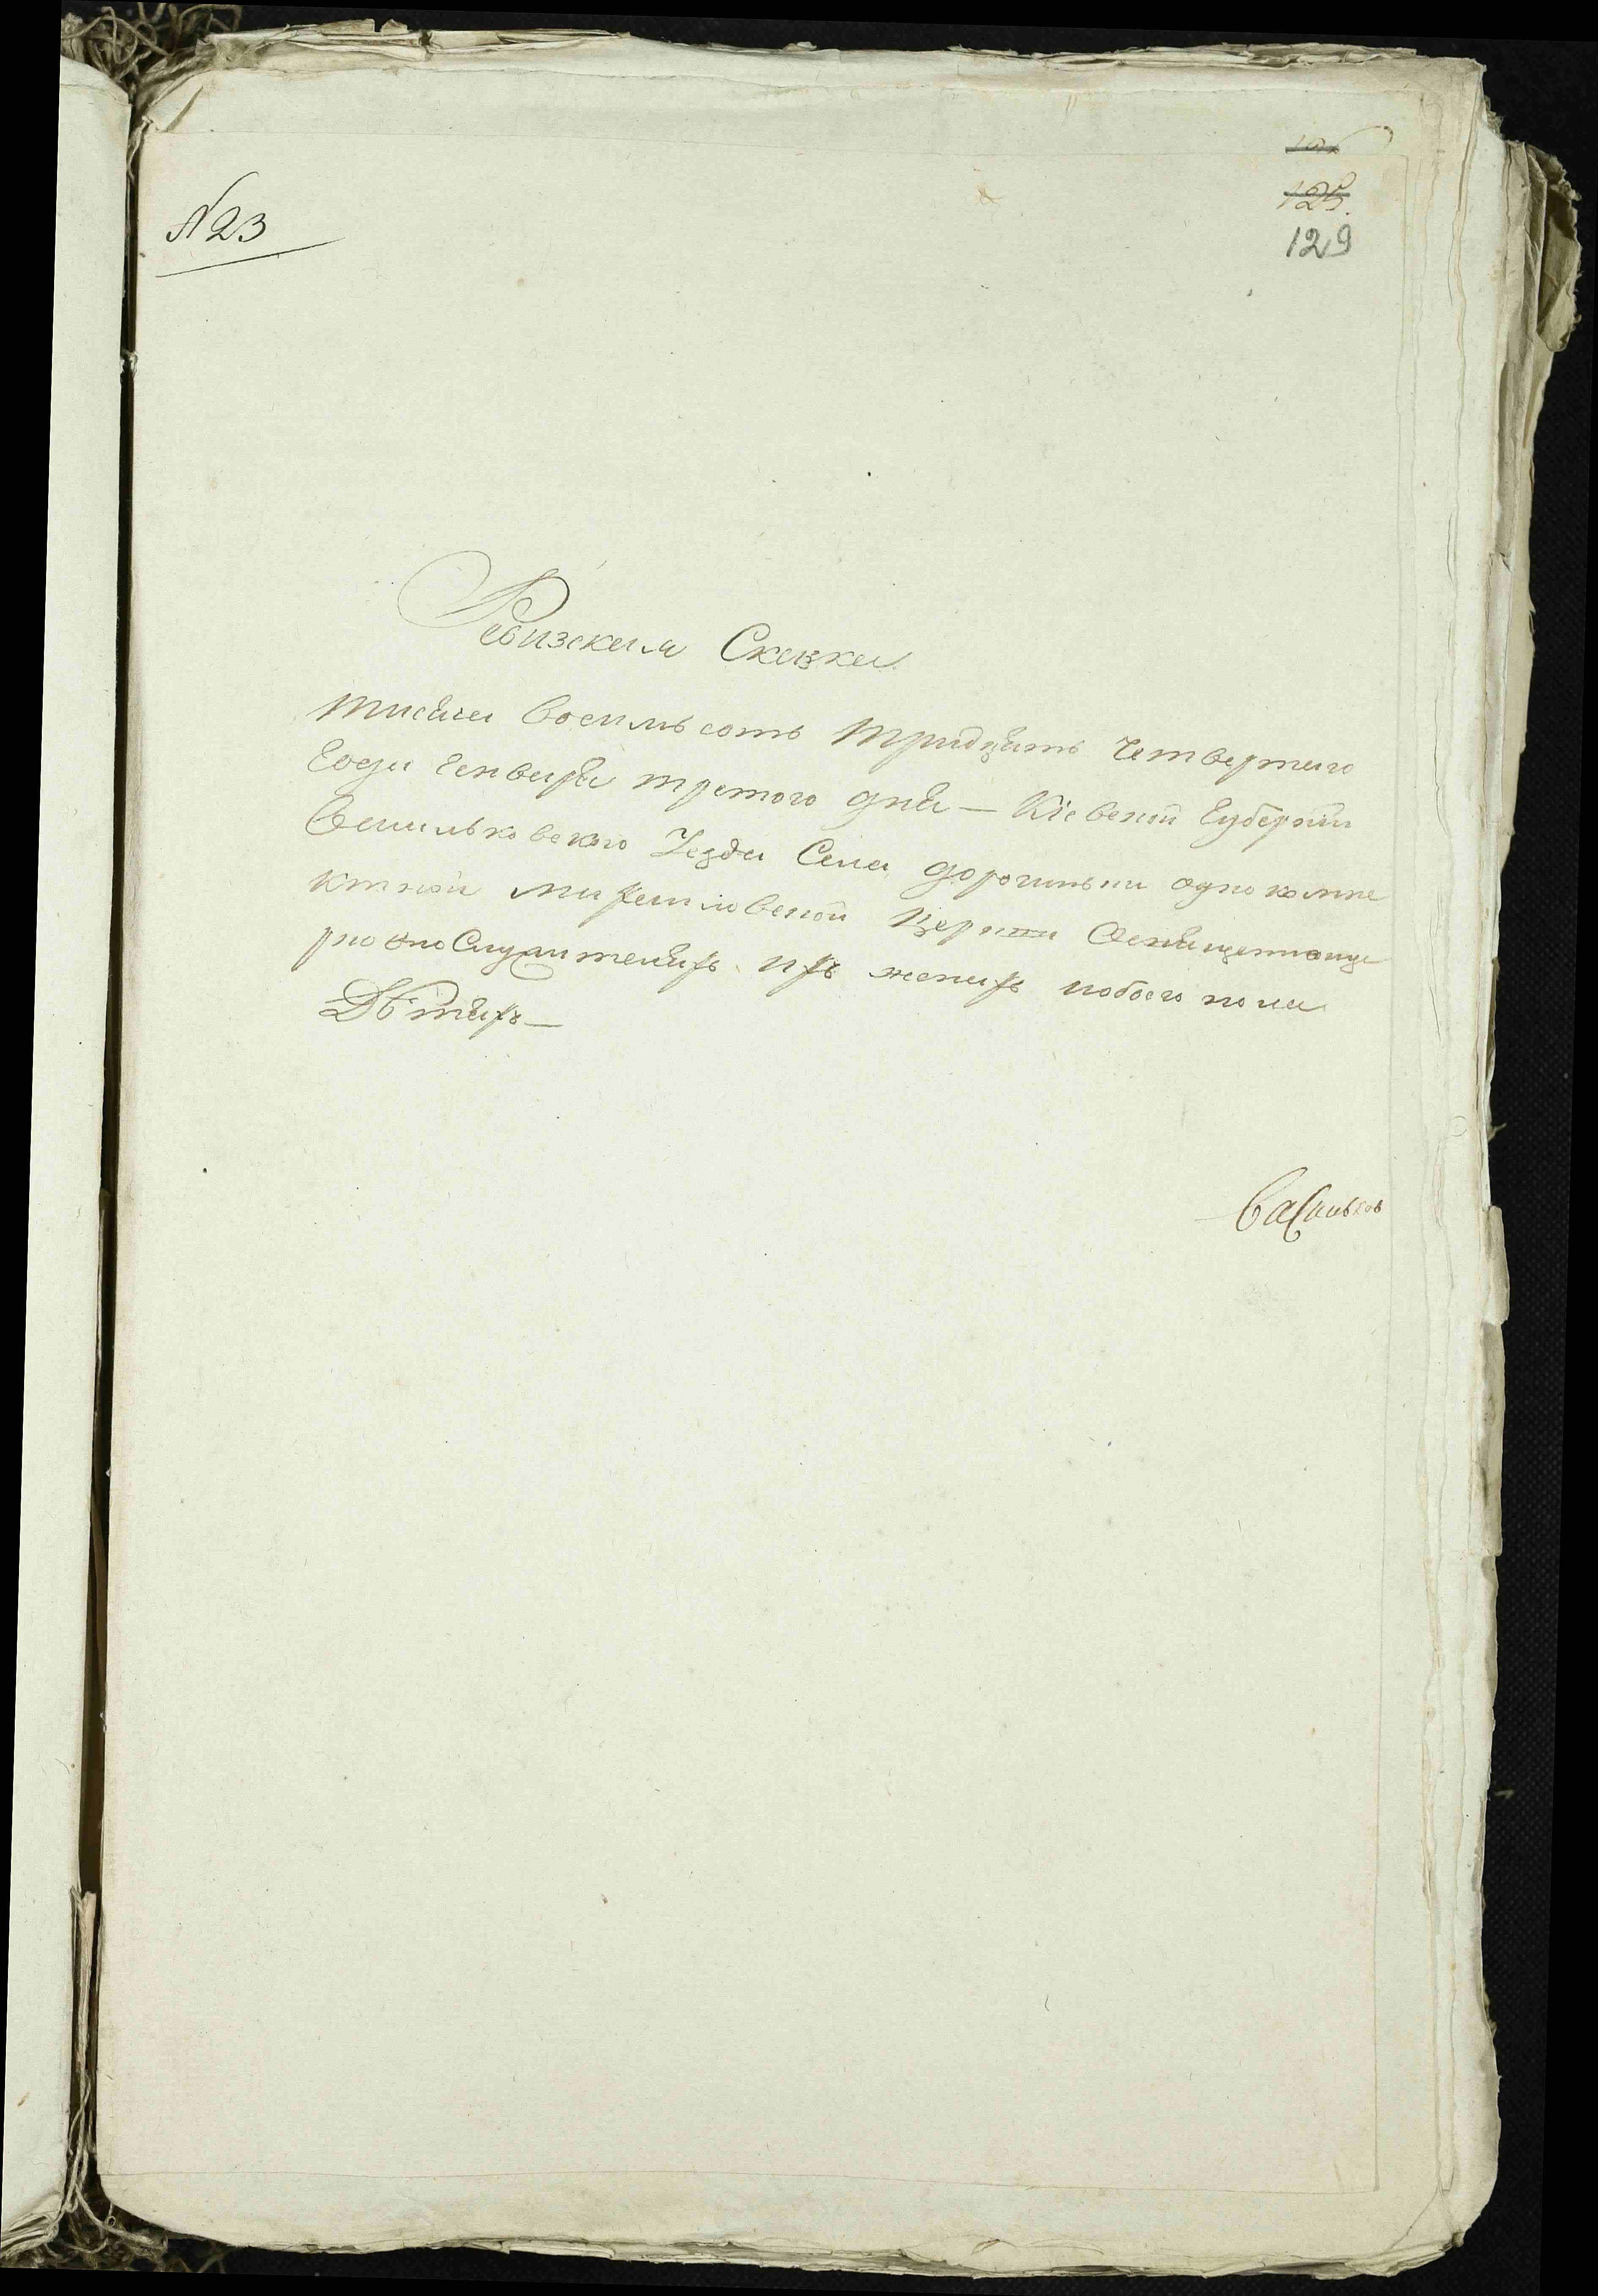 129
№ 23
Ревизская Сказка
тисяча восемь сотъ тридцять четвертаго
года генваря третого дня — Кіевской Губерніи
Васильковского Уезда Села дорогинъки однокомпле
ктной михайловской Церкви Священноце
рковнослужителяхъ ихъ женахъ иобоего пола
Дѣтяхъ —
Васильков